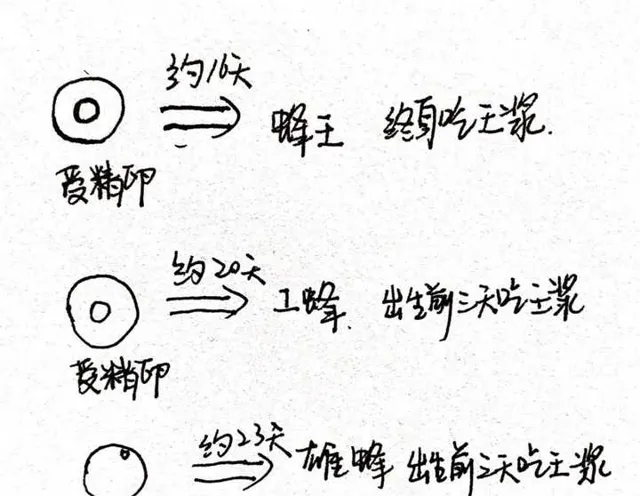 约16天
蜂王 终身吃王浆.
受精卵
约20天
工蜂. 出生前三天吃王浆
受精卵
约23天
雄蜂 出生前三天吃王浆